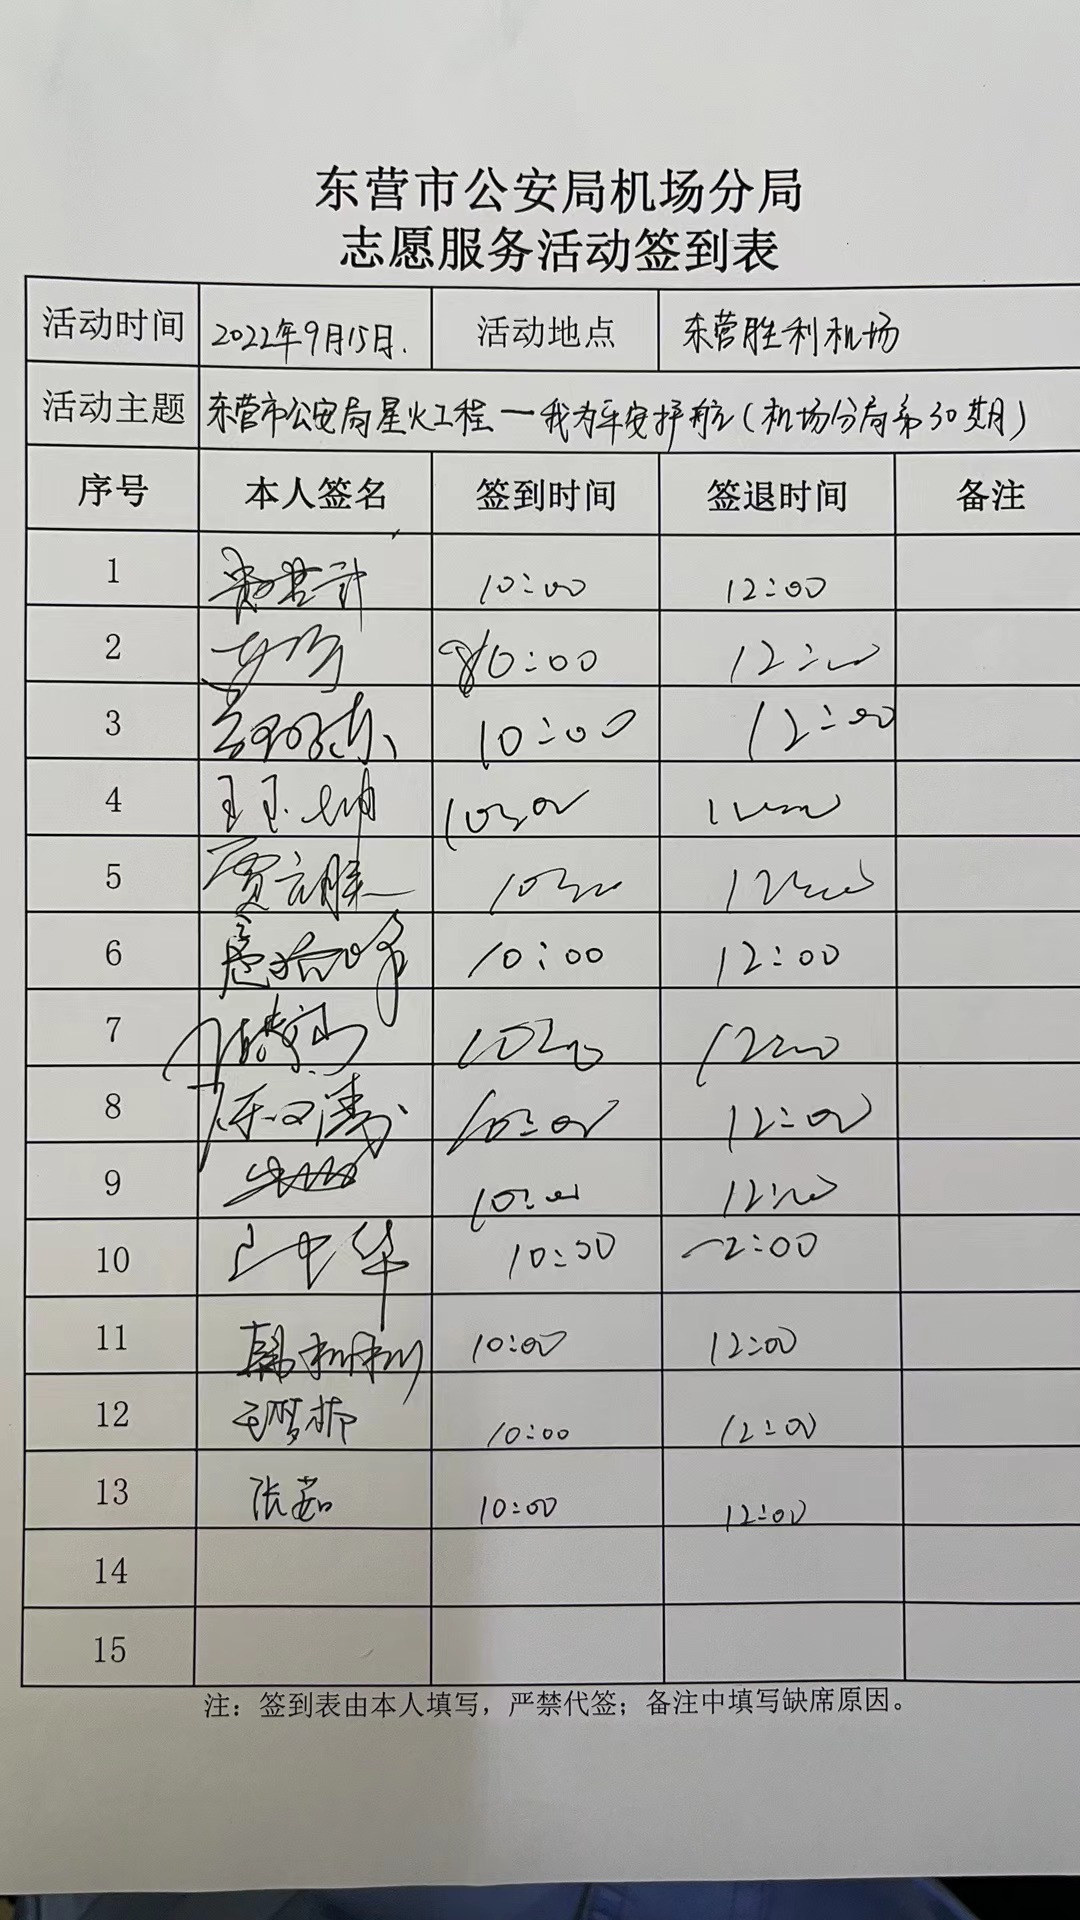 东营市公安局机场分局
志愿服务活动签到表
活动时间 2022年9月15日. 活动地点 东营胜利机场
活动主题 东营市公安局星火工程—我为平安护航(机场分局第30期)
序号 本人签名 签到时间 签退时间 备注
1 10:00 12:00
2 10:00 12:00
3 10:00 12:00
4 10:00 12:00
5 贾立胜 10:00 12:00
6 10:00 12:00
7 10:00 12:00
8 10:00 12:00
9 10:00 12:00
10 中华 10:00 12:00
11 韩利利 10:00 12:00
12 王梦楠 10:00 12:00
13 张茹 10:00 12:00
14
15
注：签到表由本人填写，严禁代签；备注中填写缺席原因。